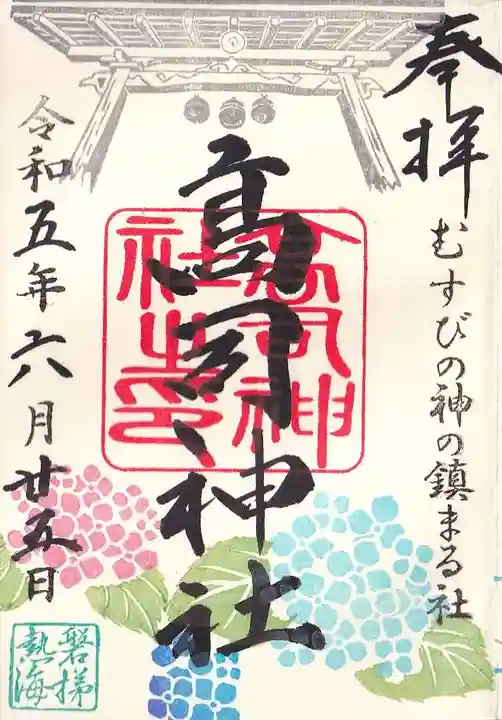 奉拝
むすびの神の鎮まる社
高司神社
高司神社之印
令和五年六月廿五日
磐梯
熱海